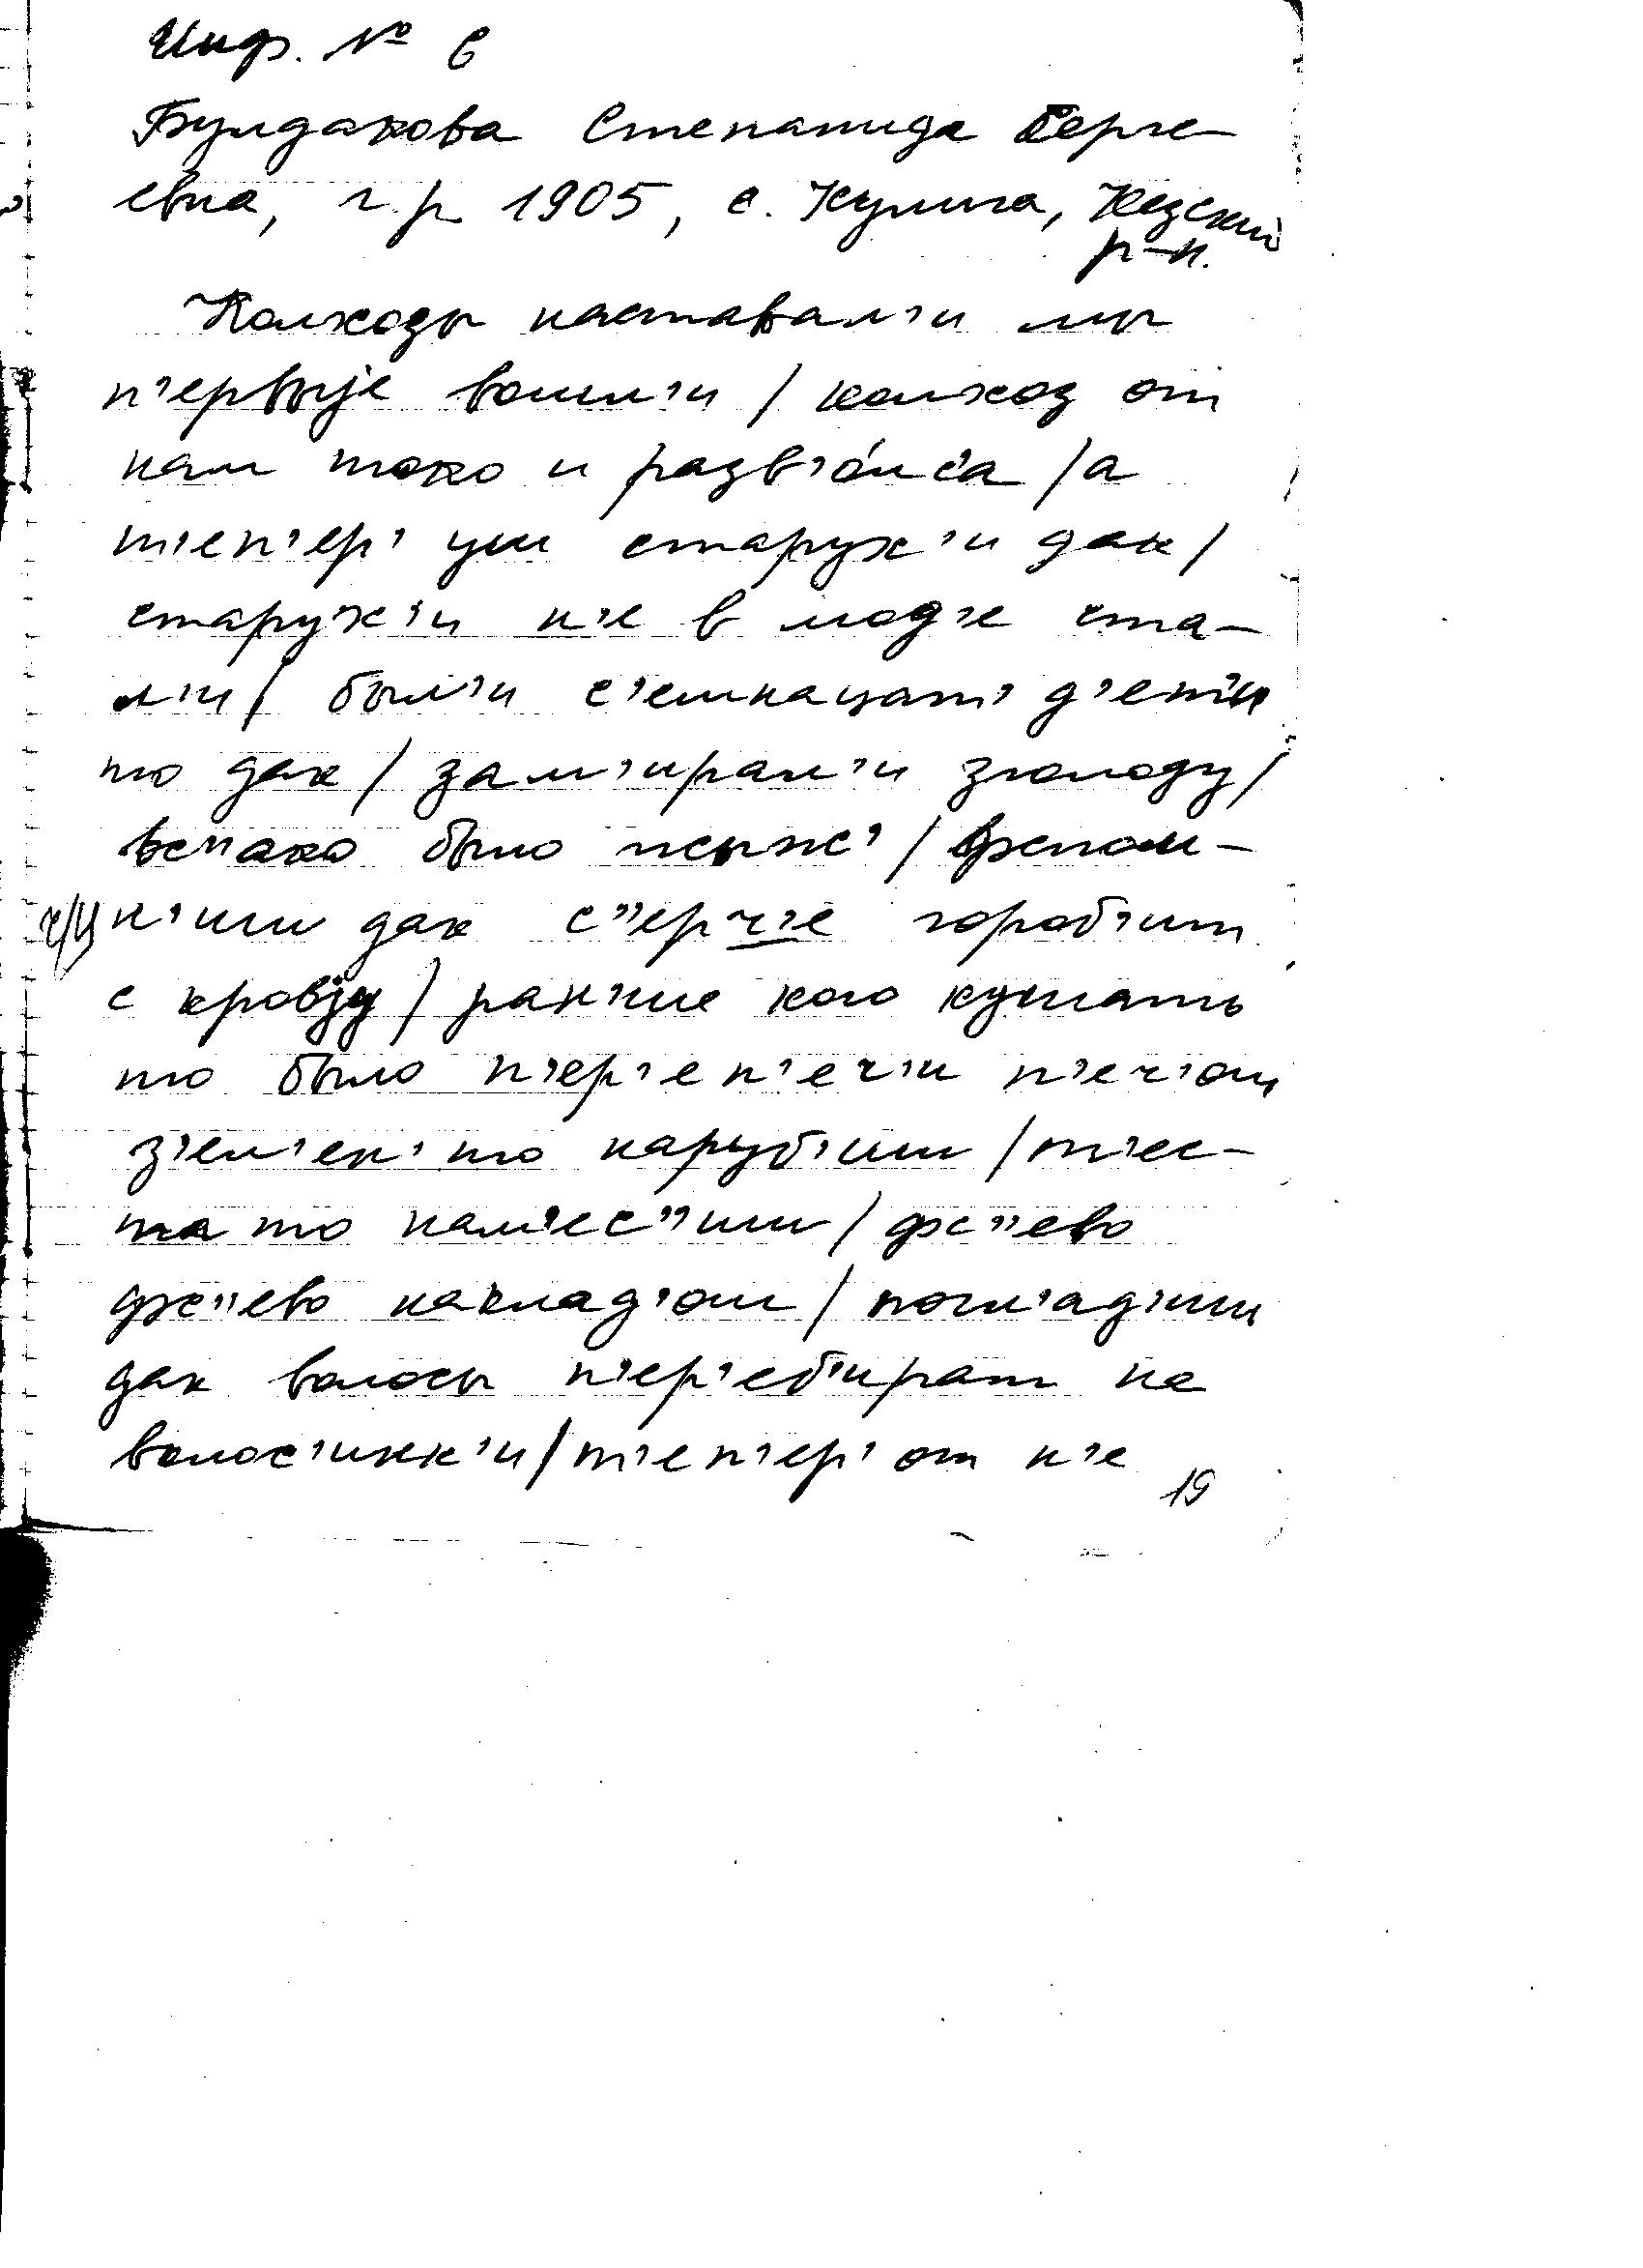 Инф. № 6
Булдакова Степанида Серге-
евна, г.р 1905, с. Кулига, Кезский
р-н.
Колхозы наставал'и мы
п'ервыjе вошл'и / колхоз от
нам токо и разв'о́лс'а / а
т'еп'ер' уш старух'и дак /
старух'и н'е в мод'е ста-
л'и / был'и с'емнацат' д'ет'и
то дак / зам'ирал'и з голоду /
вс"ако было жыж' /
ч/ц н'иш дак с"ерч'е горобит
с кровjу / ран'ше кого кушать
то было п'ер'еп'еч'и п'еч'ош
з'ел'ен' то наруб'иш / т'ес-
та то нам'ес"иш / фс"ево
фс"ево наклад'ош / погл'ад'иш
дак волосы п'ер'еб'ират на
волос'инк'и / т'еп'ер' от н'е
19